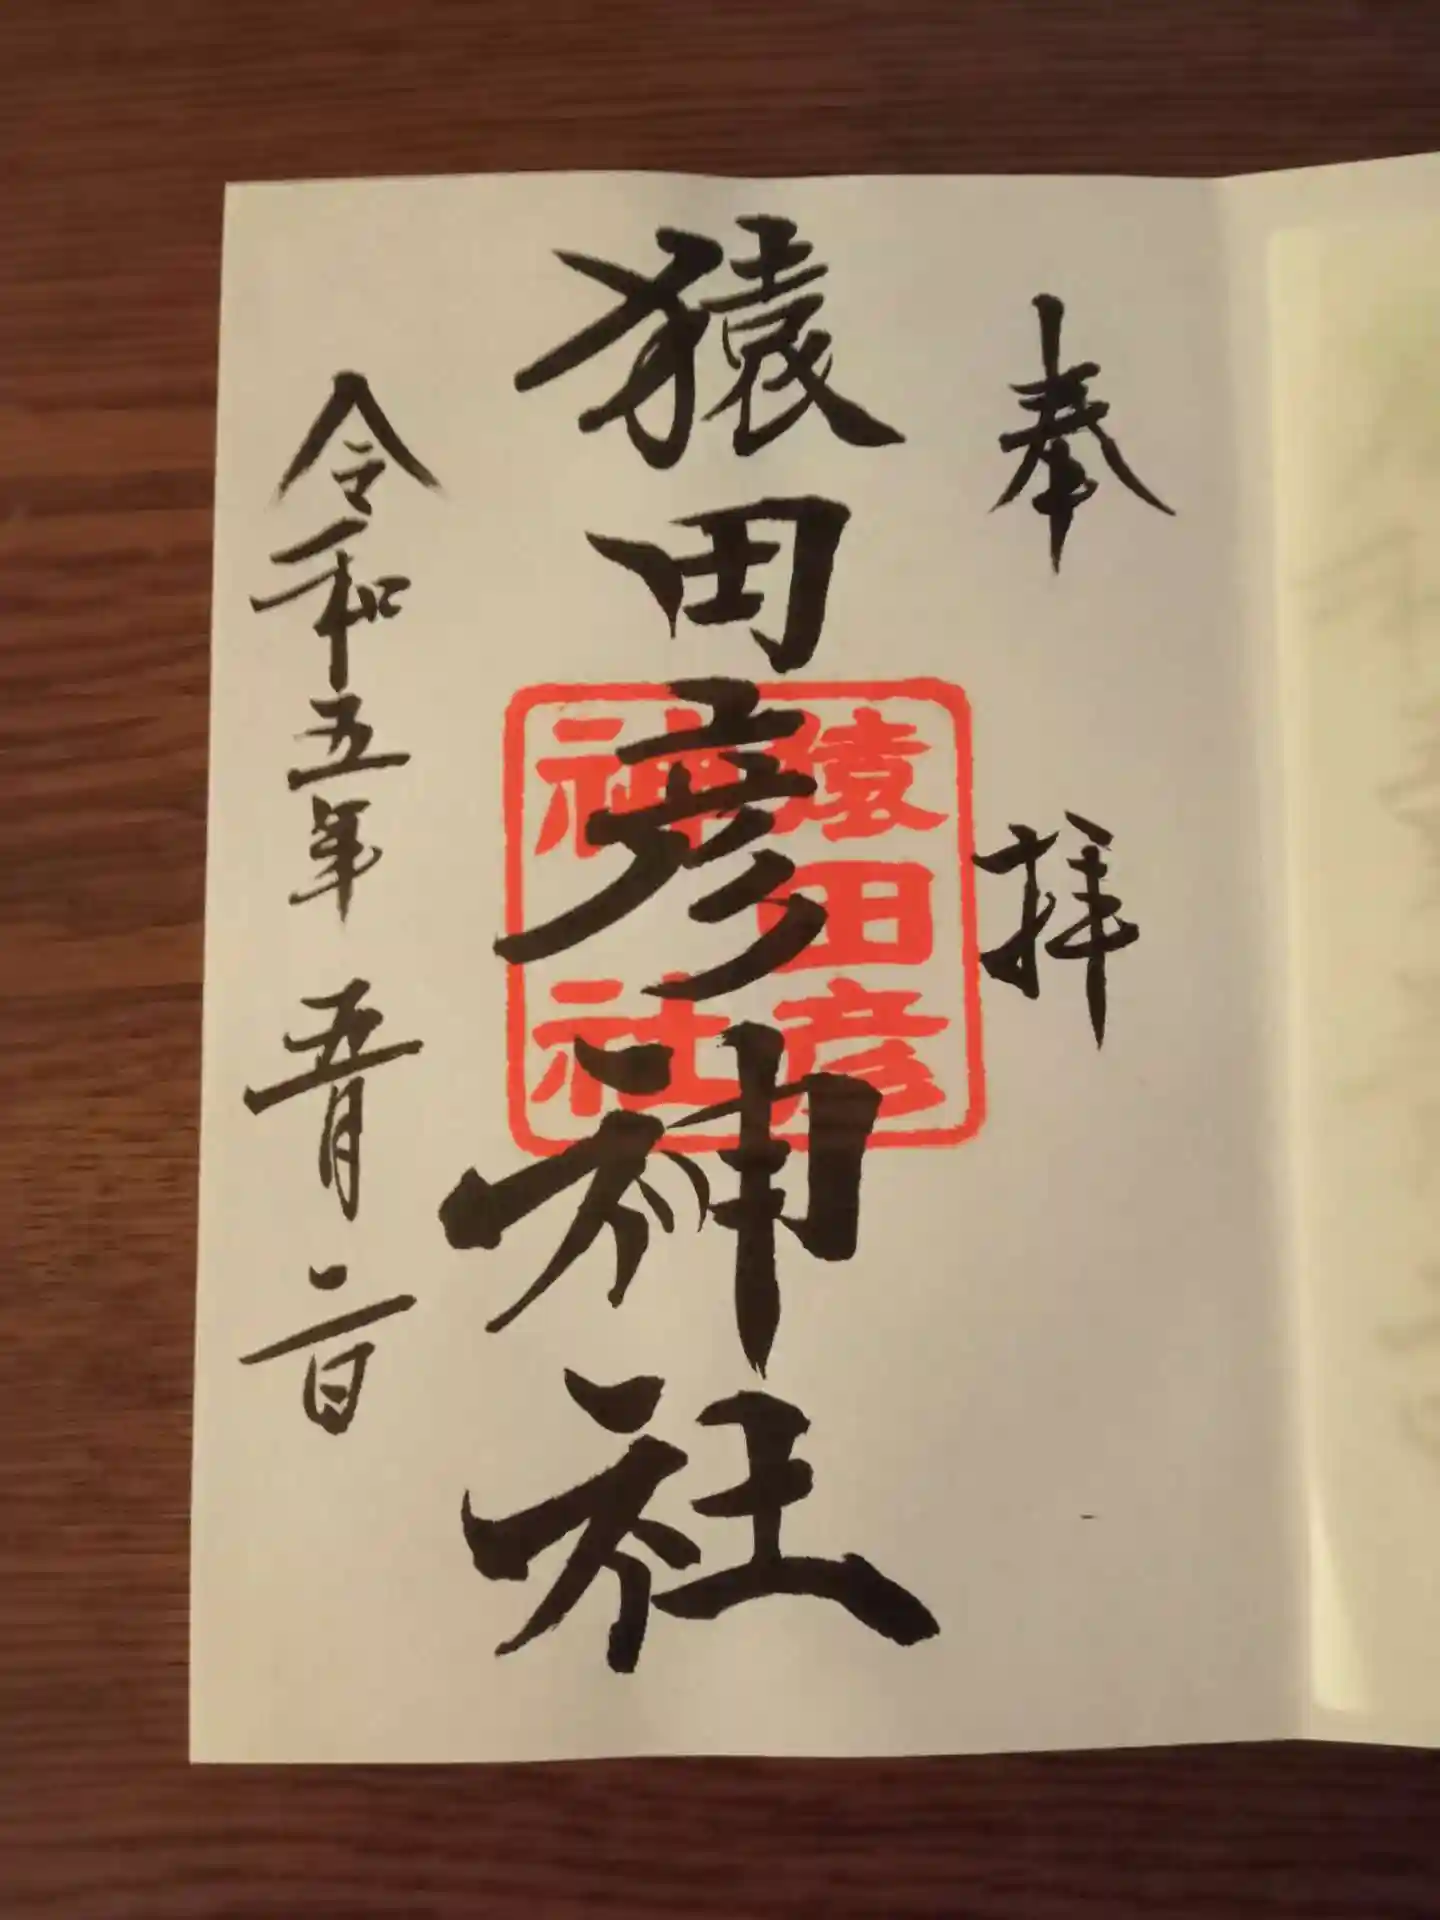 奉拝
猿田彦神社
猿田彦
神社
令和五年五月二日